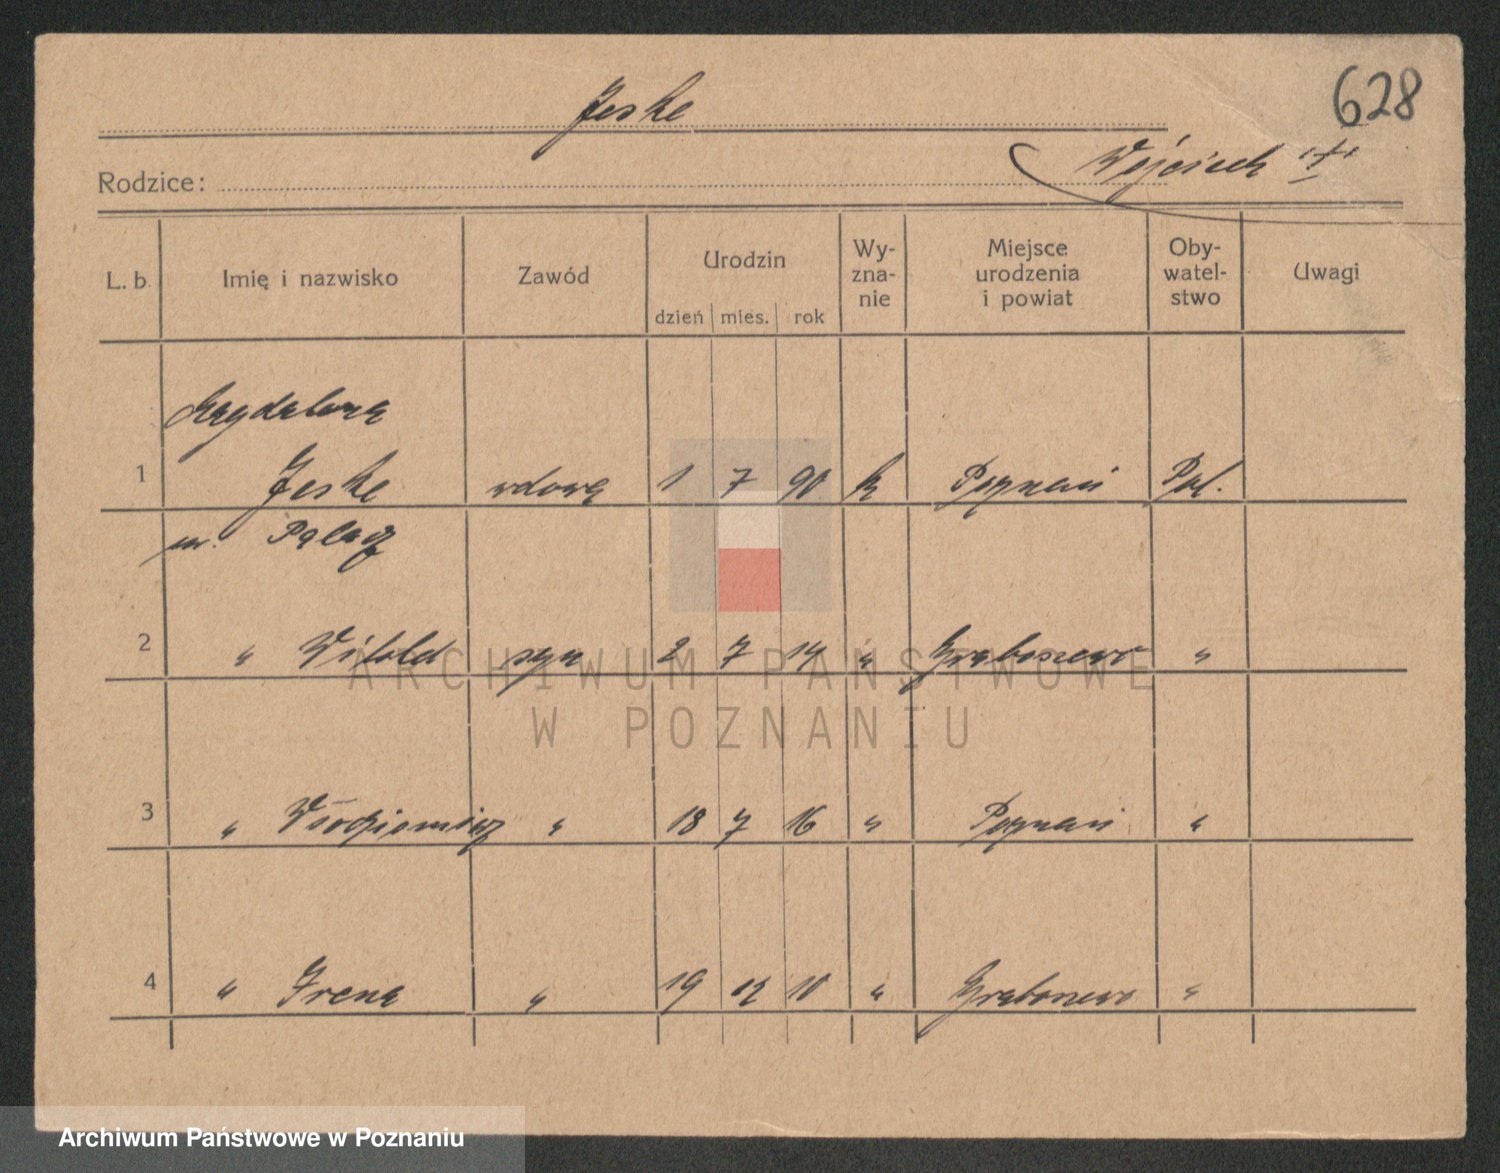 628
Jeske
Wojciech "+"
Rodzice:
L. b. Imię i nazwisko Zawód Urodzin dzień mies. rok Wy-zna-nie Miejsce urodzenia i powiat Oby-watel-stwo Uwagi
Magdalena
1 Jeske wdowa 1 7 90 k Poznań Pol.
Palacz
2 " Witold syn 2 7 14 " Graboszewo "
ARCHIWUM PAŃSTWOWE
W POZNANIU
3 " Włodzimierz " 18 7 16 " Poznań "
4 " Irena " 19 12 10 " Graboszewo "
Archiwum Państwowe w Poznaniu